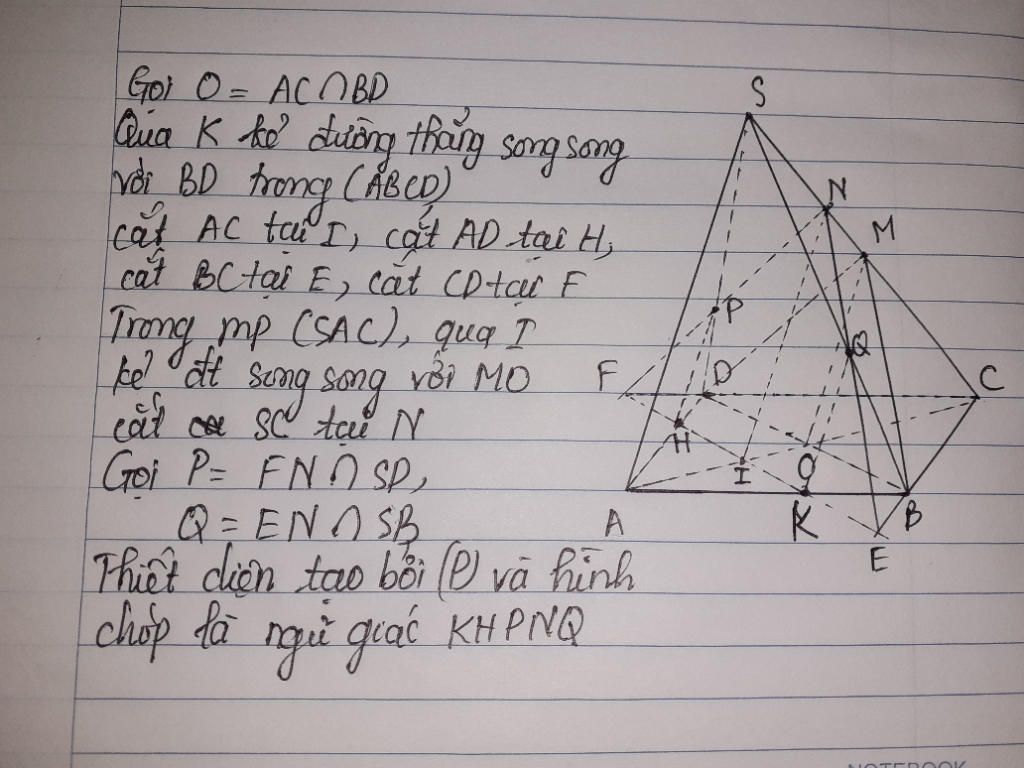 Gọi O = AC∩BD
Qua K kẻ đường thẳng song song
với BD trong (ABCD)
cắt AC tại I, cắt AD tại H,
cắt BC tại E, cắt CD tại F
Trong mp (SAC), qua I
kẻ đt song song với MO
cắt SC tại N
Gọi P = FN∩SD,
Q = EN∩SB
Thiết diện tạo bởi (P) và hình
chóp là ngũ giác KHPNQ
S
N
M
P
Q
F
D
C
H
I
O
A
K
B
E
NOTEBOOK